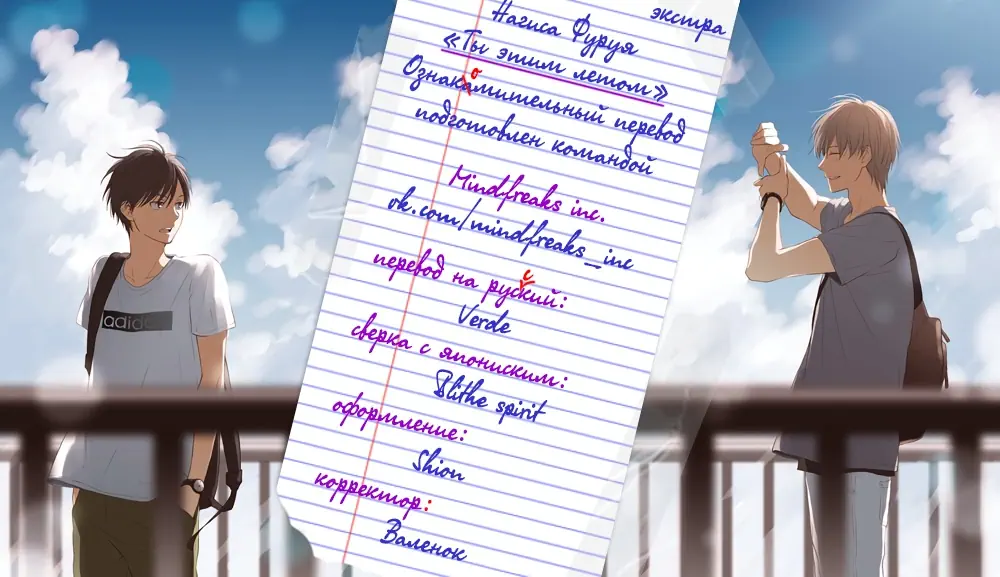 экстра
Нагиса Фуруя
«Ты этим летом»
о
Ознакамительный перевод
подготовлен командой
Mindfreaks inc.
vk.com/mindfreaks_inc
с
перевод на руский:
Verde
сверка с япониским:
Blithe spirit
оформление:
Shion
корректор:
Валенок
adidas